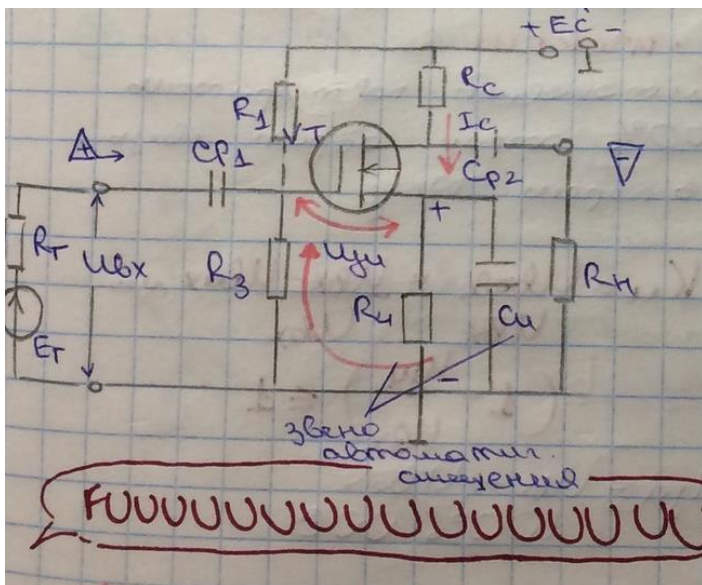 + Eс -
Rс
R1
T
Iс
Cp1
Cp2
+
Rт
Uвх
Rз
Uзи
Rи
Cи
Rн
Eт
-
звено
автоматич.
смещения
FUUUUUUUUUUUUUUUU